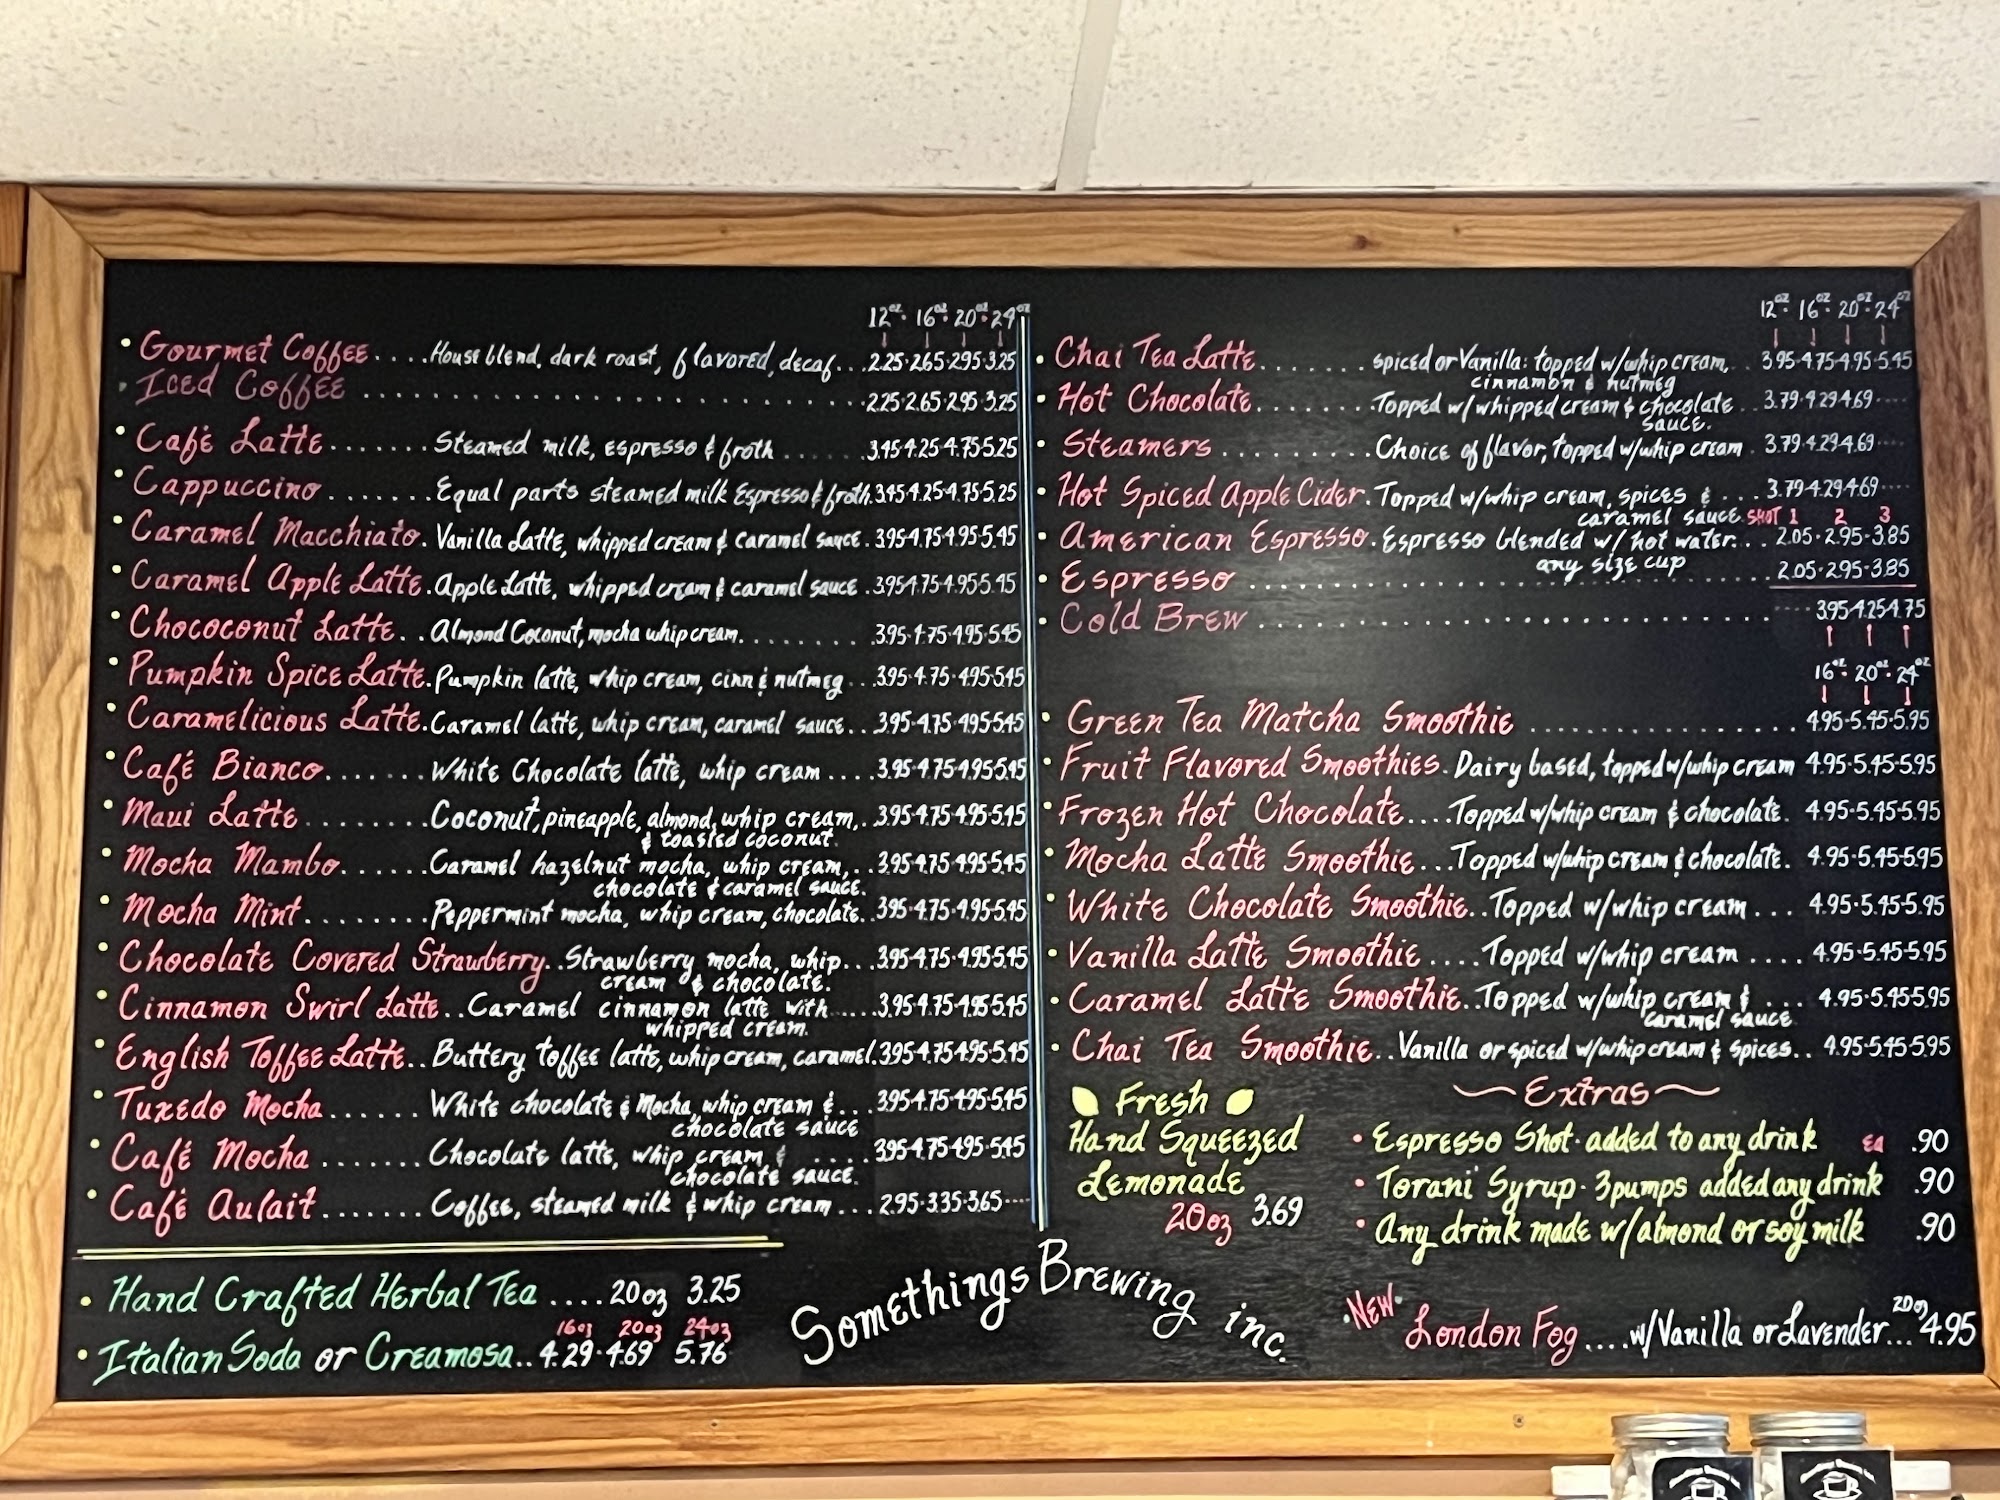 12oz. 16oz. 20oz. 24oz
Gourmet Coffee....House blend, dark roast, flavored, decaf...2.25·2.65·2.95·3.25
Iced Coffee ............................ 2.25·2.65·2.95·3.25
Café Latte.......Steamed milk, espresso & froth .......3.45·4.25·4.75·5.25
Cappuccino.......Equal parts steamed milk Espresso & froth.3.45·4.25·4.75·5.25
Caramel Macchiato.Vanilla Latte, whipped cream & caramel sauce.3.95·4.75·4.95·5.45
Caramel Apple Latte.Apple Latte, whipped cream & caramel sauce.3.95·4.75·4.95·5.45
Chococonut Latte..Almond Coconut, mocha whip cream........3.95·4.75·4.95·5.45
Pumpkin Spice Latte.Pumpkin latte, whip cream, cinn & nutmeg...3.95·4.75·4.95·5.45
Caramelicious Latte.Caramel latte, whip cream, caramel sauce...3.95·4.75·4.95·5.45
Café Bianco.......White Chocolate latte, whip cream....3.95·4.75·4.95·5.45
Maui Latte........Coconut, pineapple, almond, whip cream,..3.95·4.75·4.95·5.45
& toasted coconut.
Mocha Mambo......Caramel hazelnut mocha, whip cream,..3.95·4.75·4.95·5.45
chocolate & caramel sauce.
Mocha Mint........Peppermint mocha, whip cream, chocolate..3.95·4.75·4.95·5.45
Chocolate Covered Strawberry..Strawberry mocha, whip...3.95·4.75·4.95·5.45
cream & chocolate.
Cinnamon Swirl Latte..Caramel cinnamon latte with.....3.95·4.75·4.95·5.45
whipped cream.
English Toffee Latte..Buttery toffee latte, whip cream, caramel.3.95·4.75·4.95·5.45
Tuxedo Mocha......White chocolate & Mocha, whip cream &...3.95·4.75·4.95·5.45
chocolate sauce
Café Mocha.......Chocolate latte, whip cream & ....3.95·4.75·4.95·5.45
chocolate sauce.
Café Aulait.......Coffee, steamed milk & whip cream...2.95·3.35·3.65....
Hand Crafted Herbal Tea ....20oz 3.25
16oz 20oz 24oz
Italian Soda or Creamosa..4.29·4.69 5.76
Somethings Brewing inc.
12oz. 16oz. 20oz. 24oz
Chai Tea Latte.......spiced or Vanilla: topped w/whip cream, . 3.95·4.75·4.95·5.45
cinnamon & nutmeg
Hot Chocolate.......Topped w/whipped cream & chocolate .. 3.79·4.29·4.69....
sauce.
Steamers .........Choice of flavor, topped w/whip cream . 3.79·4.29·4.69....
Hot Spiced Apple Cider.Topped w/whip cream, spices & ...3.79·4.29·4.69....
caramel sauce. SHOT 1 2 3
American Espresso.Espresso blended w/ hot water...2.05·2.95·3.85
any size cup
Espresso ............................ 2.05·2.95·3.85
Cold Brew ............................ ....3.95·4.25·4.75
16oz. 20oz. 24oz
Green Tea Matcha Smoothie ................4.95·5.45·5.95
Fruit Flavored Smoothies.Dairy based, topped w/whip cream 4.95·5.45·5.95
Frozen Hot Chocolate....Topped w/whip cream & chocolate. 4.95·5.45·5.95
Mocha Latte Smoothie...Topped w/whip cream & chocolate. 4.95·5.45·5.95
White Chocolate Smoothie..Topped w/whip cream... 4.95·5.45·5.95
Vanilla Latte Smoothie....Topped w/whip cream .... 4.95·5.45·5.95
Caramel Latte Smoothie..Topped w/whip cream & ... 4.95·5.45·5.95
caramel sauce
Chai Tea Smoothie..Vanilla or spiced w/whip cream & spices.. 4.95·5.45·5.95
Fresh
Hand Squeezed
Lemonade
20oz 3.69
Extras
Espresso Shot· added to any drink ea .90
Torani Syrup· 3pumps added any drink .90
Any drink made w/almond or soy milk .90
·NEW· London Fog ....w/Vanilla or Lavender... 20oz 4.95